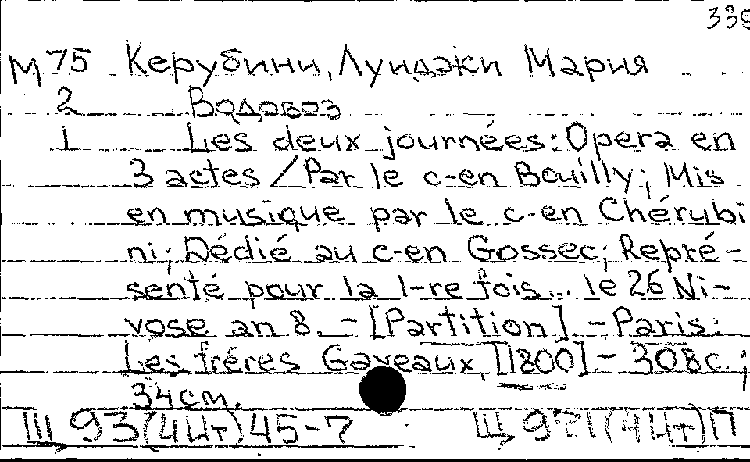 339
М 75 Керубини, Луиджи Мария
2 Водовоз
1 Les deux journées: Opera en
3 actes / Par le c-en Bouilly; Mis
en musique par le c-en Chérubi
ni; Dédié au c-en Gossec; Repré-
senté pour la 1-re fois... le 26 Ni-
vose an 8. - [Partition]. - Paris:
Les fréres Gaveaux, [1800] - 308с.;
34см.
Щ 93(4Ит)45-7 Щ 971(4Ит)П